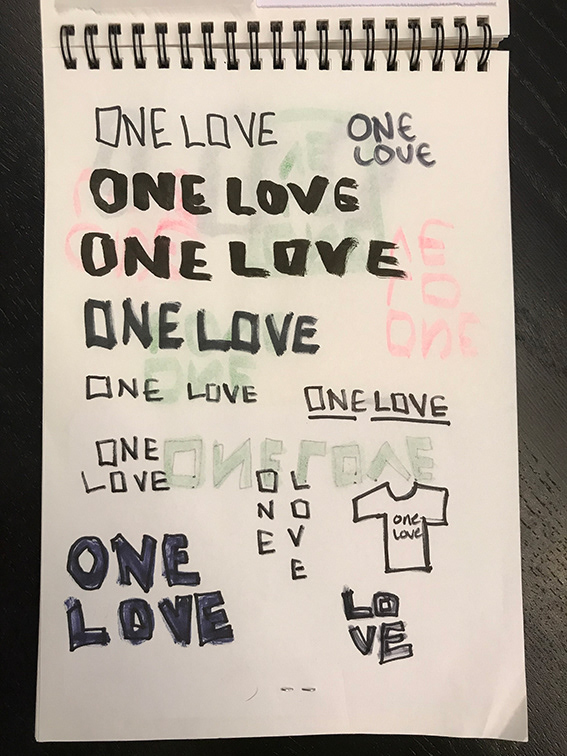 ONE LOVE
ONE
LOVE
ONE LOVE
ONE LOVE
ONE LOVE
ONE LOVE
ONE LOVE
ONE
LOVE
ONE LOVE
ONE
LOVE
one
love
ONE
LOVE
LO
VE